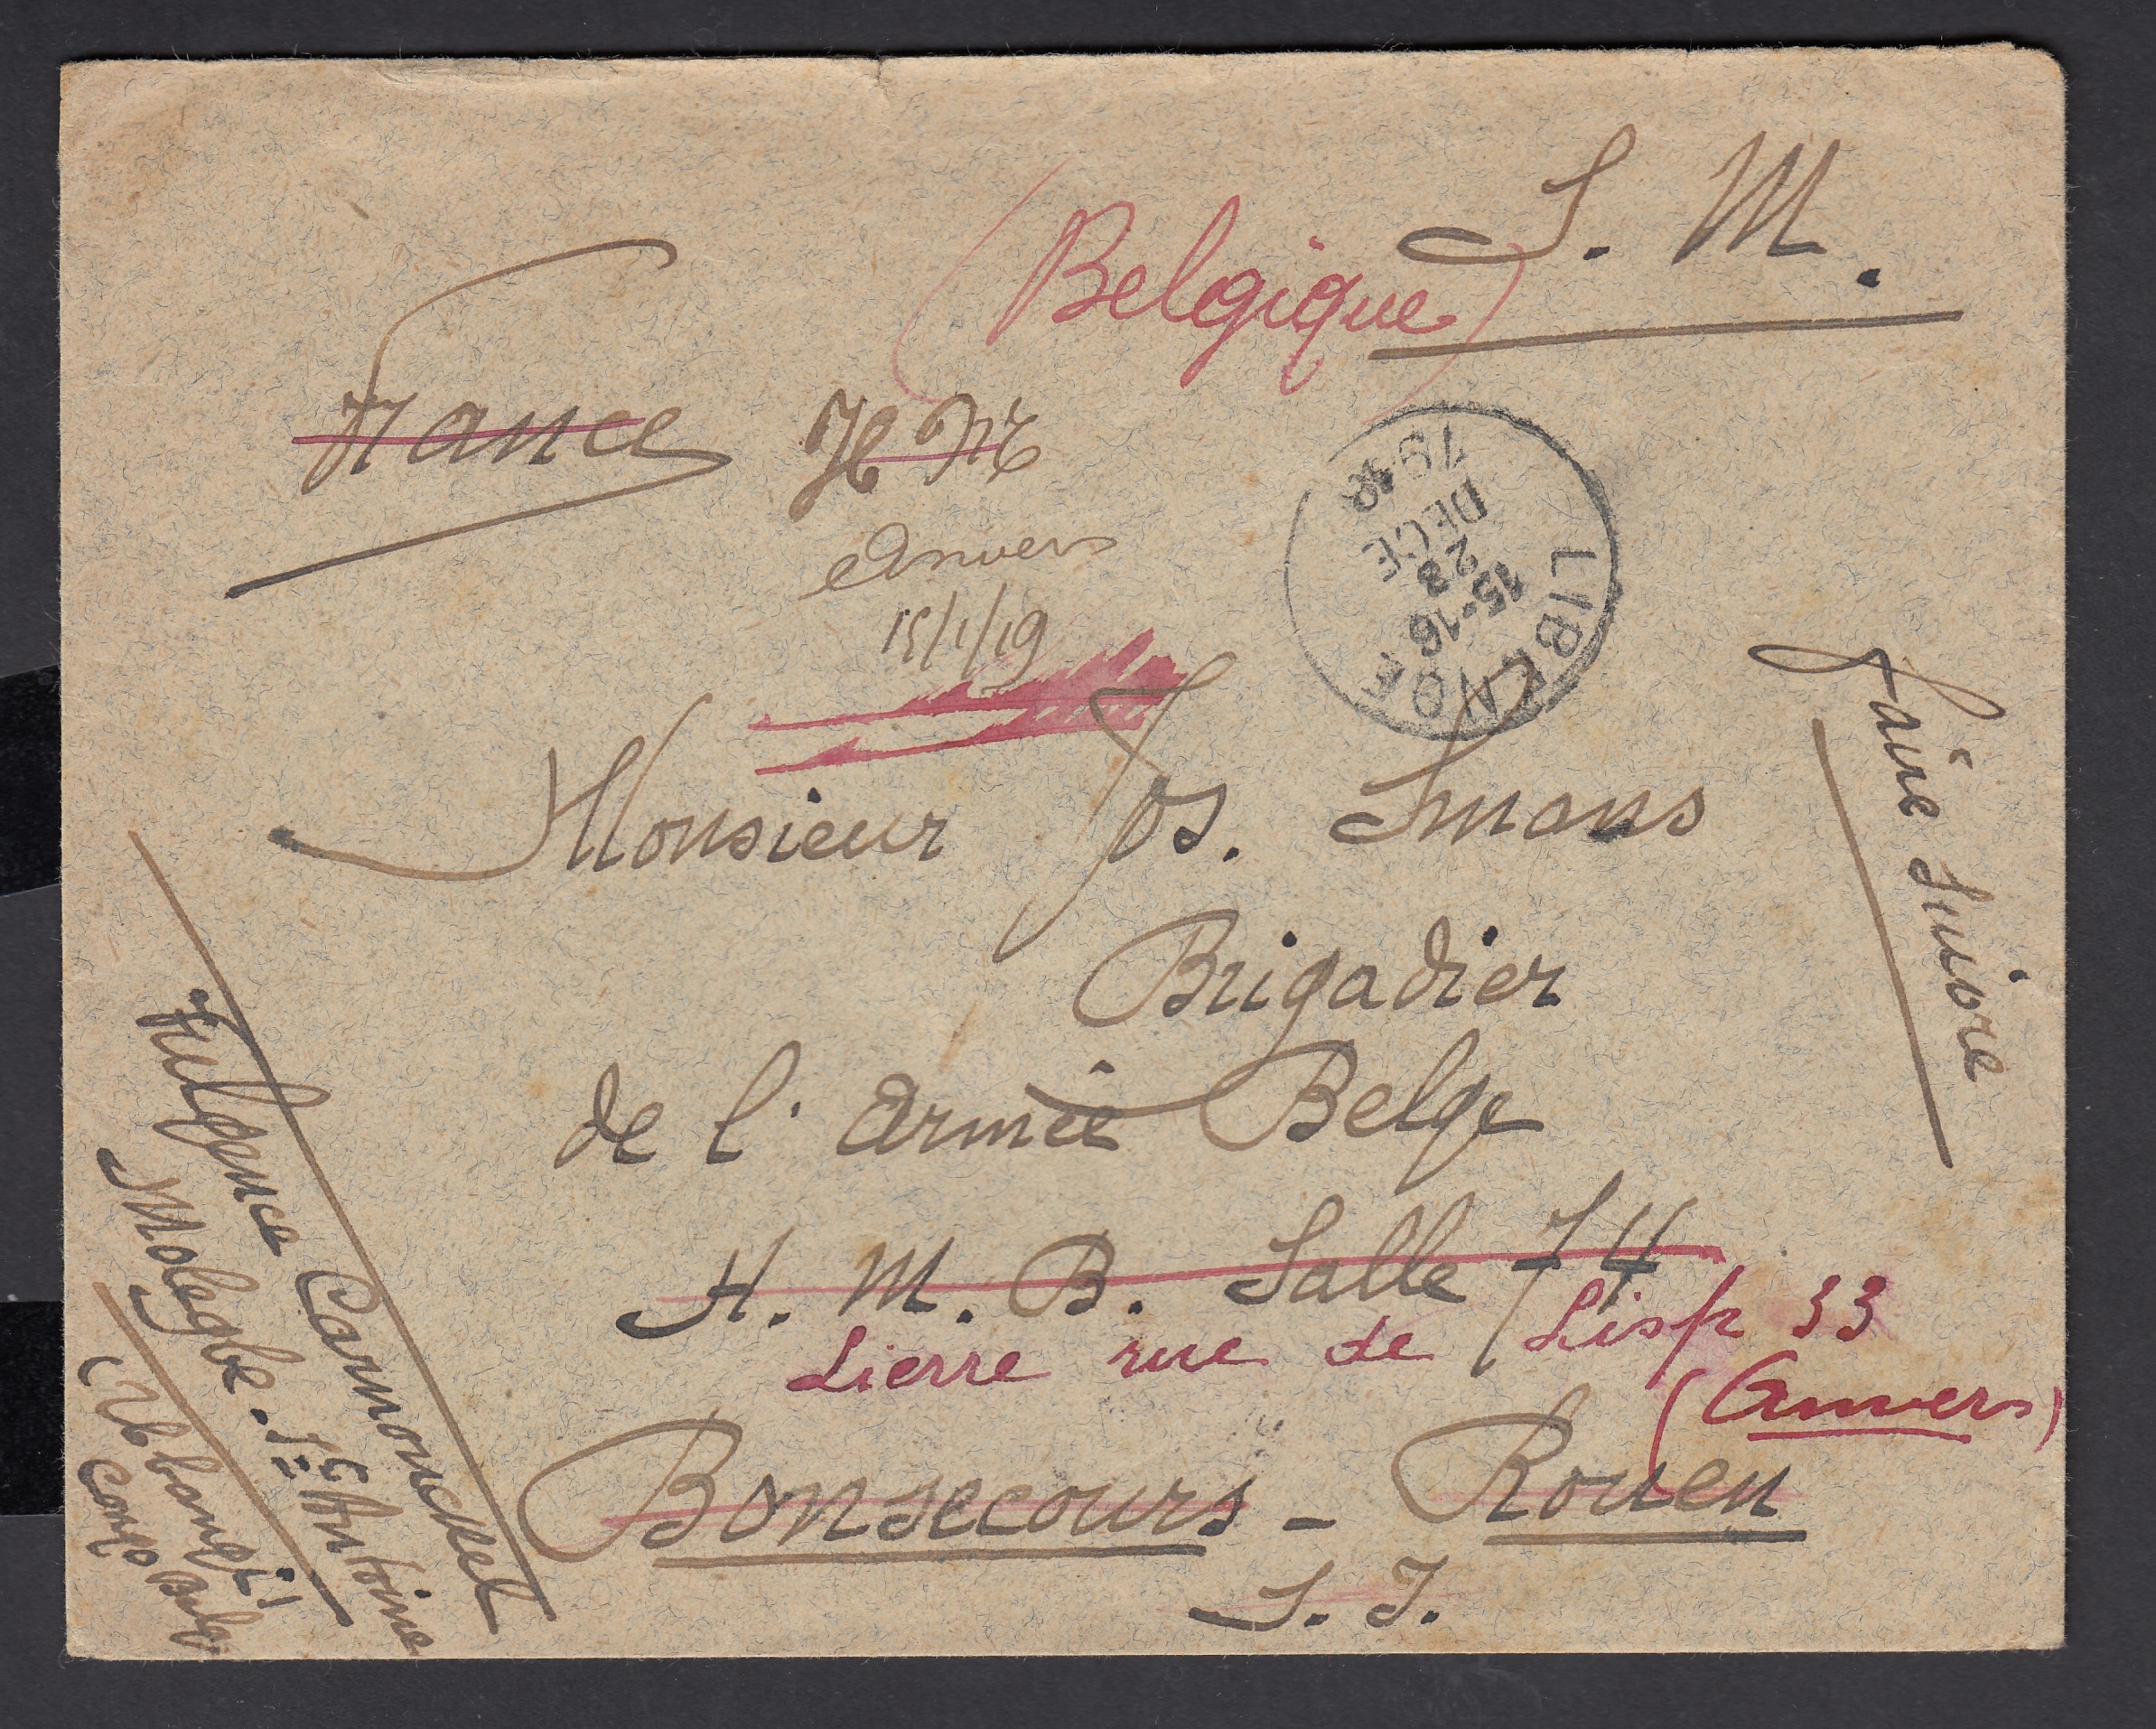 S. M.
(Belgique)
France
Anvers
15/1/19
LIBENGE
15-16
23
DECE
1918
Monsieur Jos. Smans
Brigadier
de l'armée Belge
H. M. B. Salle 74
Lierre rue de Lisp 33
(Anvers)
Bonsecours - Rouen
S. I.
Faire Suivre
Fulgence Carmonckel
Molegbe. Ste Antoine
Ubangi
Congo Belge